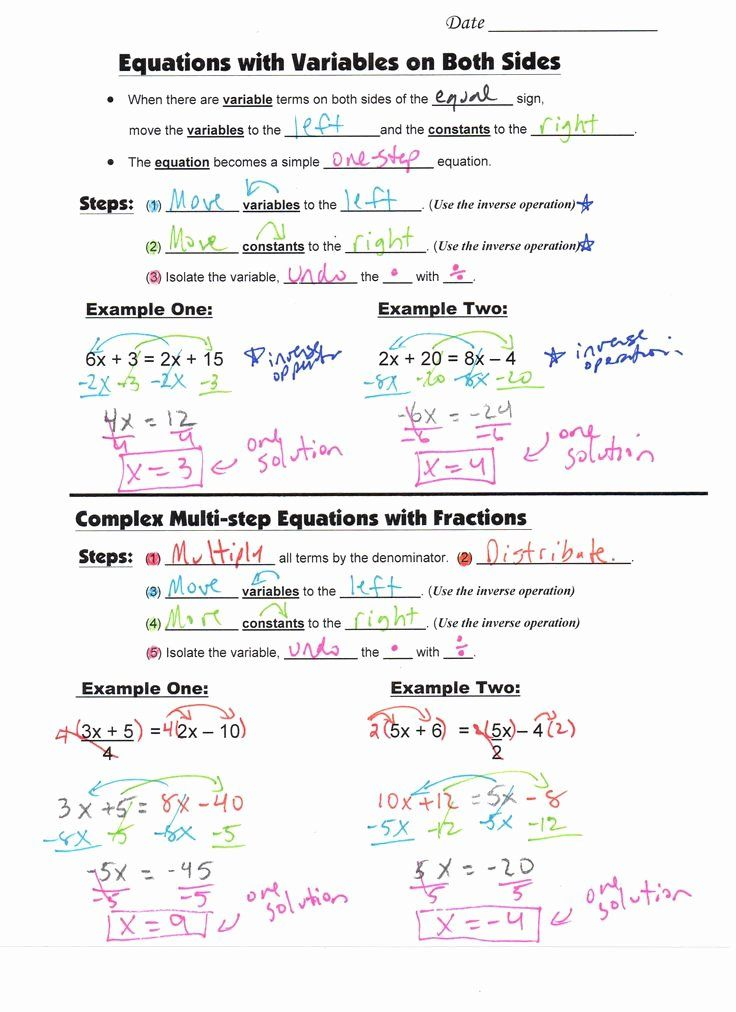 Date
Equations with Variables on Both Sides
• When there are variable terms on both sides of the equal sign,
move the variables to the left and the constants to the right.
• The equation becomes a simple one step equation.
Steps: (1) Move variables to the left. (Use the inverse operation)☆
(2) Move constants to the right. (Use the inverse operation)☆
(3) Isolate the variable, undo the • with ÷.
Example One: Example Two:
6x + 3 = 2x + 15 ☆ inverse 2x + 20 = 8x – 4 ☆ inverse operation
-2x -3 -2x -3 -8x -20 -8x -20
4x = 12 -6x = -24
4 4 -6 -6
x = 3 one solution x = 4 one solution
Complex Multi-step Equations with Fractions
Steps: (1) Multiply all terms by the denominator. (2) Distribute.
(3) Move variables to the left. (Use the inverse operation)
(4) Move constants to the right. (Use the inverse operation)
(5) Isolate the variable, undo the • with ÷.
Example One: Example Two:
4(3x + 5) = 4(2x – 10) 2(5x + 6) = 2(5x) – 4(2)
4 2
3x + 5 = 8x - 40 10x + 12 = 5x - 8
-8x -5 -8x -5 -5x -12 -5x -12
-5x = -45 5x = -20
-5 -5 5 5
x = 9 one solution x = -4 one solution